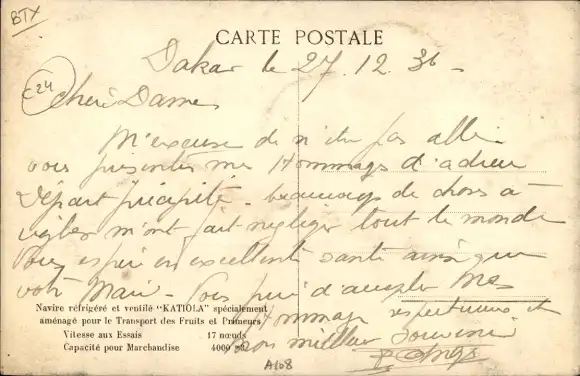 BTX
CARTE POSTALE
Dakar le 27.12.36 -
C24
Chère Dame,
M'excuse de n'etre pas allé
vous présenter mes Hommages d'adieu
Départ précipité - beaucoup de choses à
régler m'ont fait négliger tout le monde
Vous espère en excellente santé ainsi que
votre Mari - Vous prie d'accepter mes
Hommages respectueux et
mon meilleur souvenir
Navire réfrigéré et ventilé "KATIOLA" spécialement
aménagé pour le Transport des Fruits et Primeurs
Vitesse aux Essais 17 nœuds
Capacité pour Marchandise 4000 m3
A108